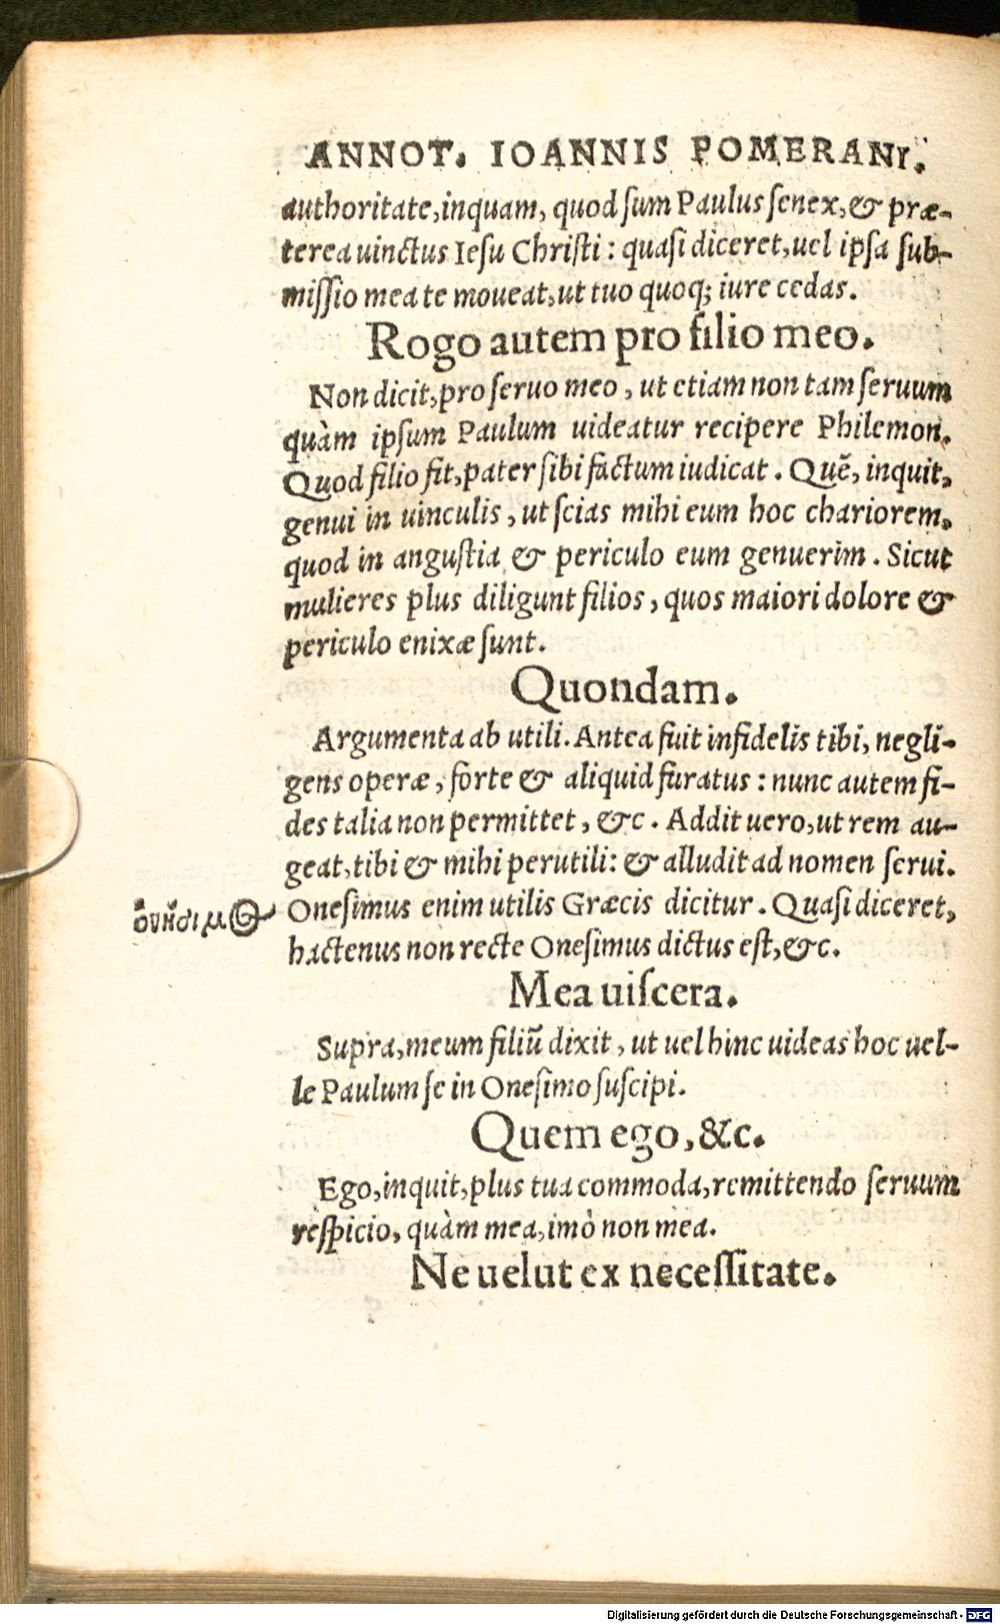 ANNOT. IOANNIS POMERANI.
authoritate, inquam, quod ſum Paulus ſenex, & præ-
terea uinctus Ieſu Chriſti: quaſi diceret, uel ipſa ſub-
miſſio mea te moueat, ut tuo quoq; iure cedas.
Rogo autem pro filio meo.
Non dicit, pro ſeruo meo, ut etiam non tam ſeruum
quàm ipſum Paulum uideatur recipere Philemon.
Quod filio fit, pater ſibi factum iudicat. Quē, inquit,
genui in uinculis, ut ſcias mihi eum hoc chariorem,
quod in anguſtia & periculo eum genuerim. Sicut
mulieres plus diligunt filios, quos maiori dolore &
periculo enixæ ſunt.
Quondam.
Argumenta ab utili. Antea fuit infidelis tibi, negli-
gens operæ, forte & aliquid furatus: nunc autem fi-
des talia non permittet, &c. Addit uero, ut rem au-
geat, tibi & mihi perutili: & alludit ad nomen ſerui.
ὀνήσιμος
Oneſimus enim utilis Græcis dicitur. Quaſi diceret,
hactenus non recte Oneſimus dictus eſt, &c.
Mea uiſcera.
Supra, meum filiū dixit, ut uel hinc uideas hoc uel-
le Paulum ſe in Oneſimo ſuſcipi.
Quem ego, &c.
Ego, inquit, plus tua commoda, remittendo ſeruum
reſpicio, quàm mea, imò non mea.
Ne uelut ex neceſſitate.
Digitalisierung gefördert durch die Deutsche Forschungsgemeinschaft - DFG